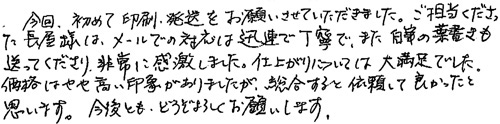 今回、初めて印刷・発送をお願いさせていただきました。ご担当くださっ
た長屋様は、メールでの対応は迅速で丁寧で、また自筆の葉書きも
送ってくださり、非常に感激しました。仕上がりについては大満足でした。
価格はやや高い印象がありましたが、総合すると依頼して良かったと
思います。今後とも、どうぞよろしくお願いします。